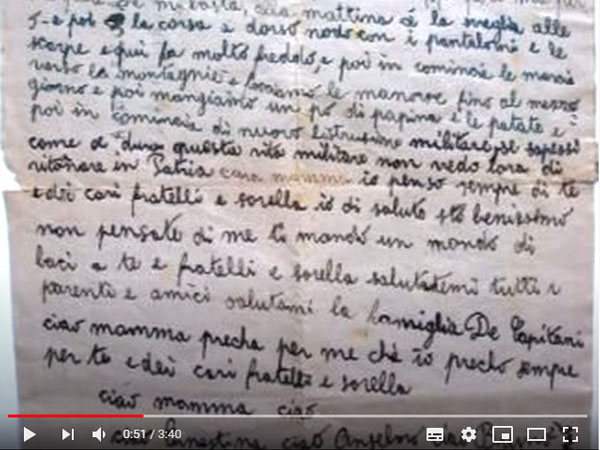 basta, cara mattina é la sveglia alle
5-e poi la corsa a dorso nodo con i pantaloni e le
scarpe e qui fa molto freddo, e poi in cominciale marcie
verso la montagnie e facciamo le manovre fino al mezzo
giorno e poi mangiamo un pó di papina e le patate e
poi in cominciale di nuovo listrusione militare, se sapessi
come é dura questa vita militare non vedo lora di
ritornare in Patria cara mamma io penso sempre di te
e dei cari fratelli e sorella io di saluto sto benissimo
non pensate di me ti mando un mondo di
baci a te e fratelli e sorella salutatemi tutti i
parenti e amici salutami la famiglia De Capitani
ciao mamma precha per me ché io precho sempre
per te e dei cari fratelli e sorella
ciao mamma ciao
ciao Ernestina, ciao Anselmo ciao
0:51 / 3:40